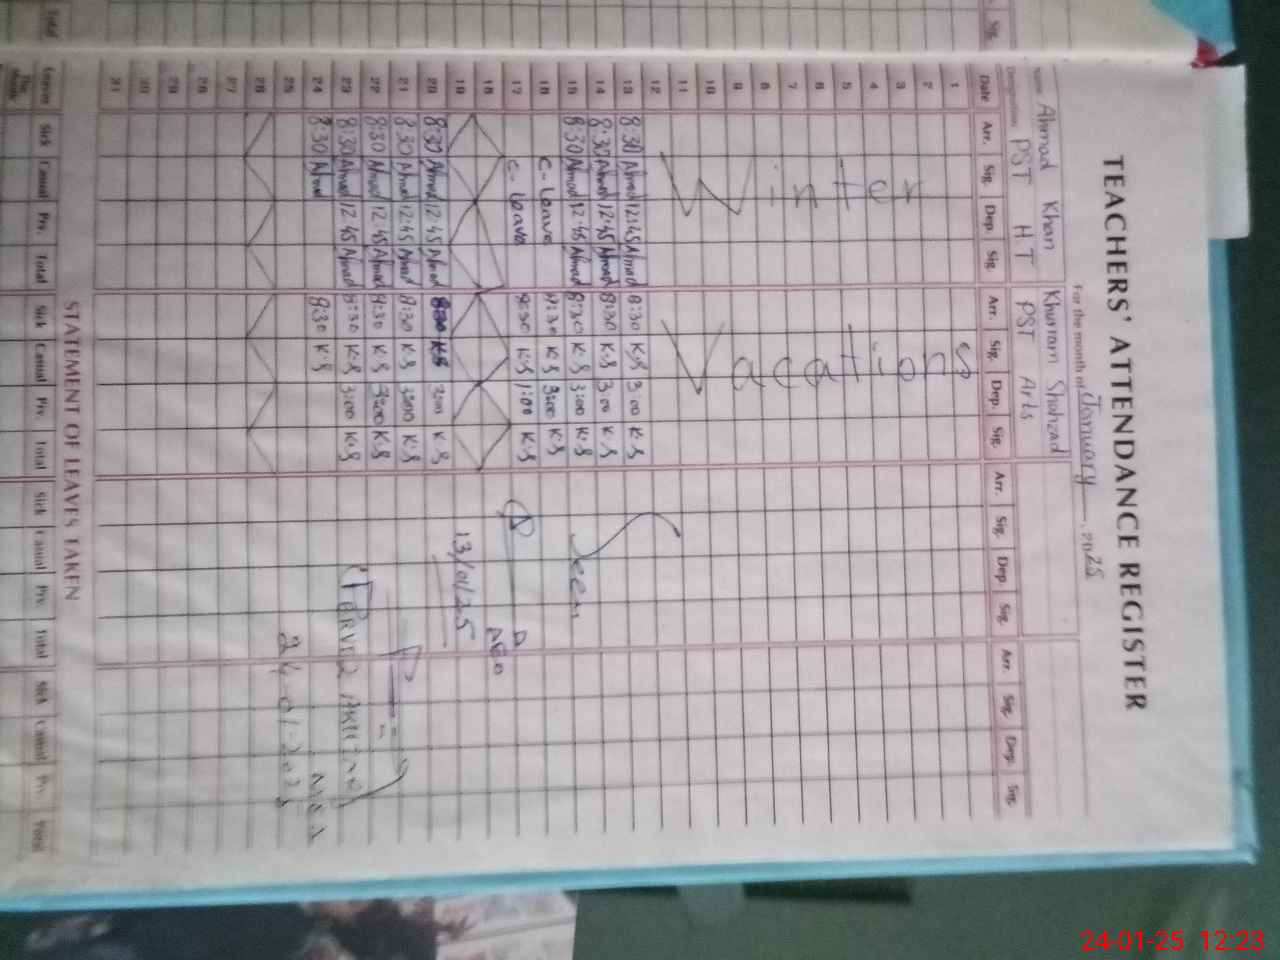 TEACHERS' ATTENDANCE REGISTER
For the month of January 2025
Name Ahmad Khan Khurram Shahzad
Designation PST HT PST Arts
Date Arr. Sig. Dep. Sig. Arr. Sig. Dep. Sig. Arr. Sig. Dep. Sig. Arr. Sig. Dep. Sig.
1
2
3
4
5
6
7
8
9
10
11
12
13 8:30 Ahmad 12:45 Ahmad 8:30 K.S 3:00 K.S
14 8:30 Ahmad 12:45 Ahmad 8:30 K.S 3:00 K.S
15 8:30 Ahmad 12:45 Ahmad 8:30 K.S 3:00 K.S
Seen
16 C-Leave 8:30 K.S 3:00 K.S
17 C-Leave 8:30 K.S 1:00 K.S
18
19
13/01/25
20 8:30 Ahmad 12:45 Ahmad 8:30 K.S 3:00 K.S
21 8:30 Ahmad 12:45 Ahmad 8:30 K.S 3:00 K.S
22 8:30 Ahmad 12:45 Ahmad 8:30 K.S 3:00 K.S
23 8:30 Ahmad 12:45 Ahmad 8:30 K.S 3:00 K.S
24 8:30 Ahmad 8:30 K.S
25
24-01-2025
26
27
28
29
30
31
STATEMENT OF LEAVES TAKEN
Leaves Sick Casual Prv. Total Sick Casual Prv. Total Sick Casual Prv. Total Sick Casual Prv. Total
24-01-25 12:23